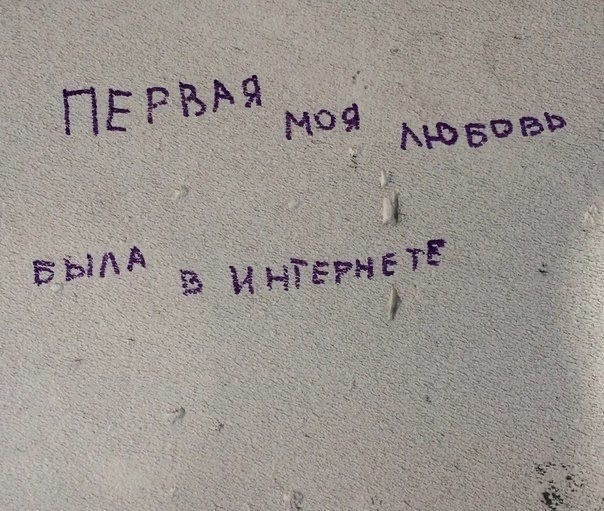 ПЕРВАЯ МОЯ ЛЮБОВЬ
БЫЛА В ИНТЕРНЕТЕ